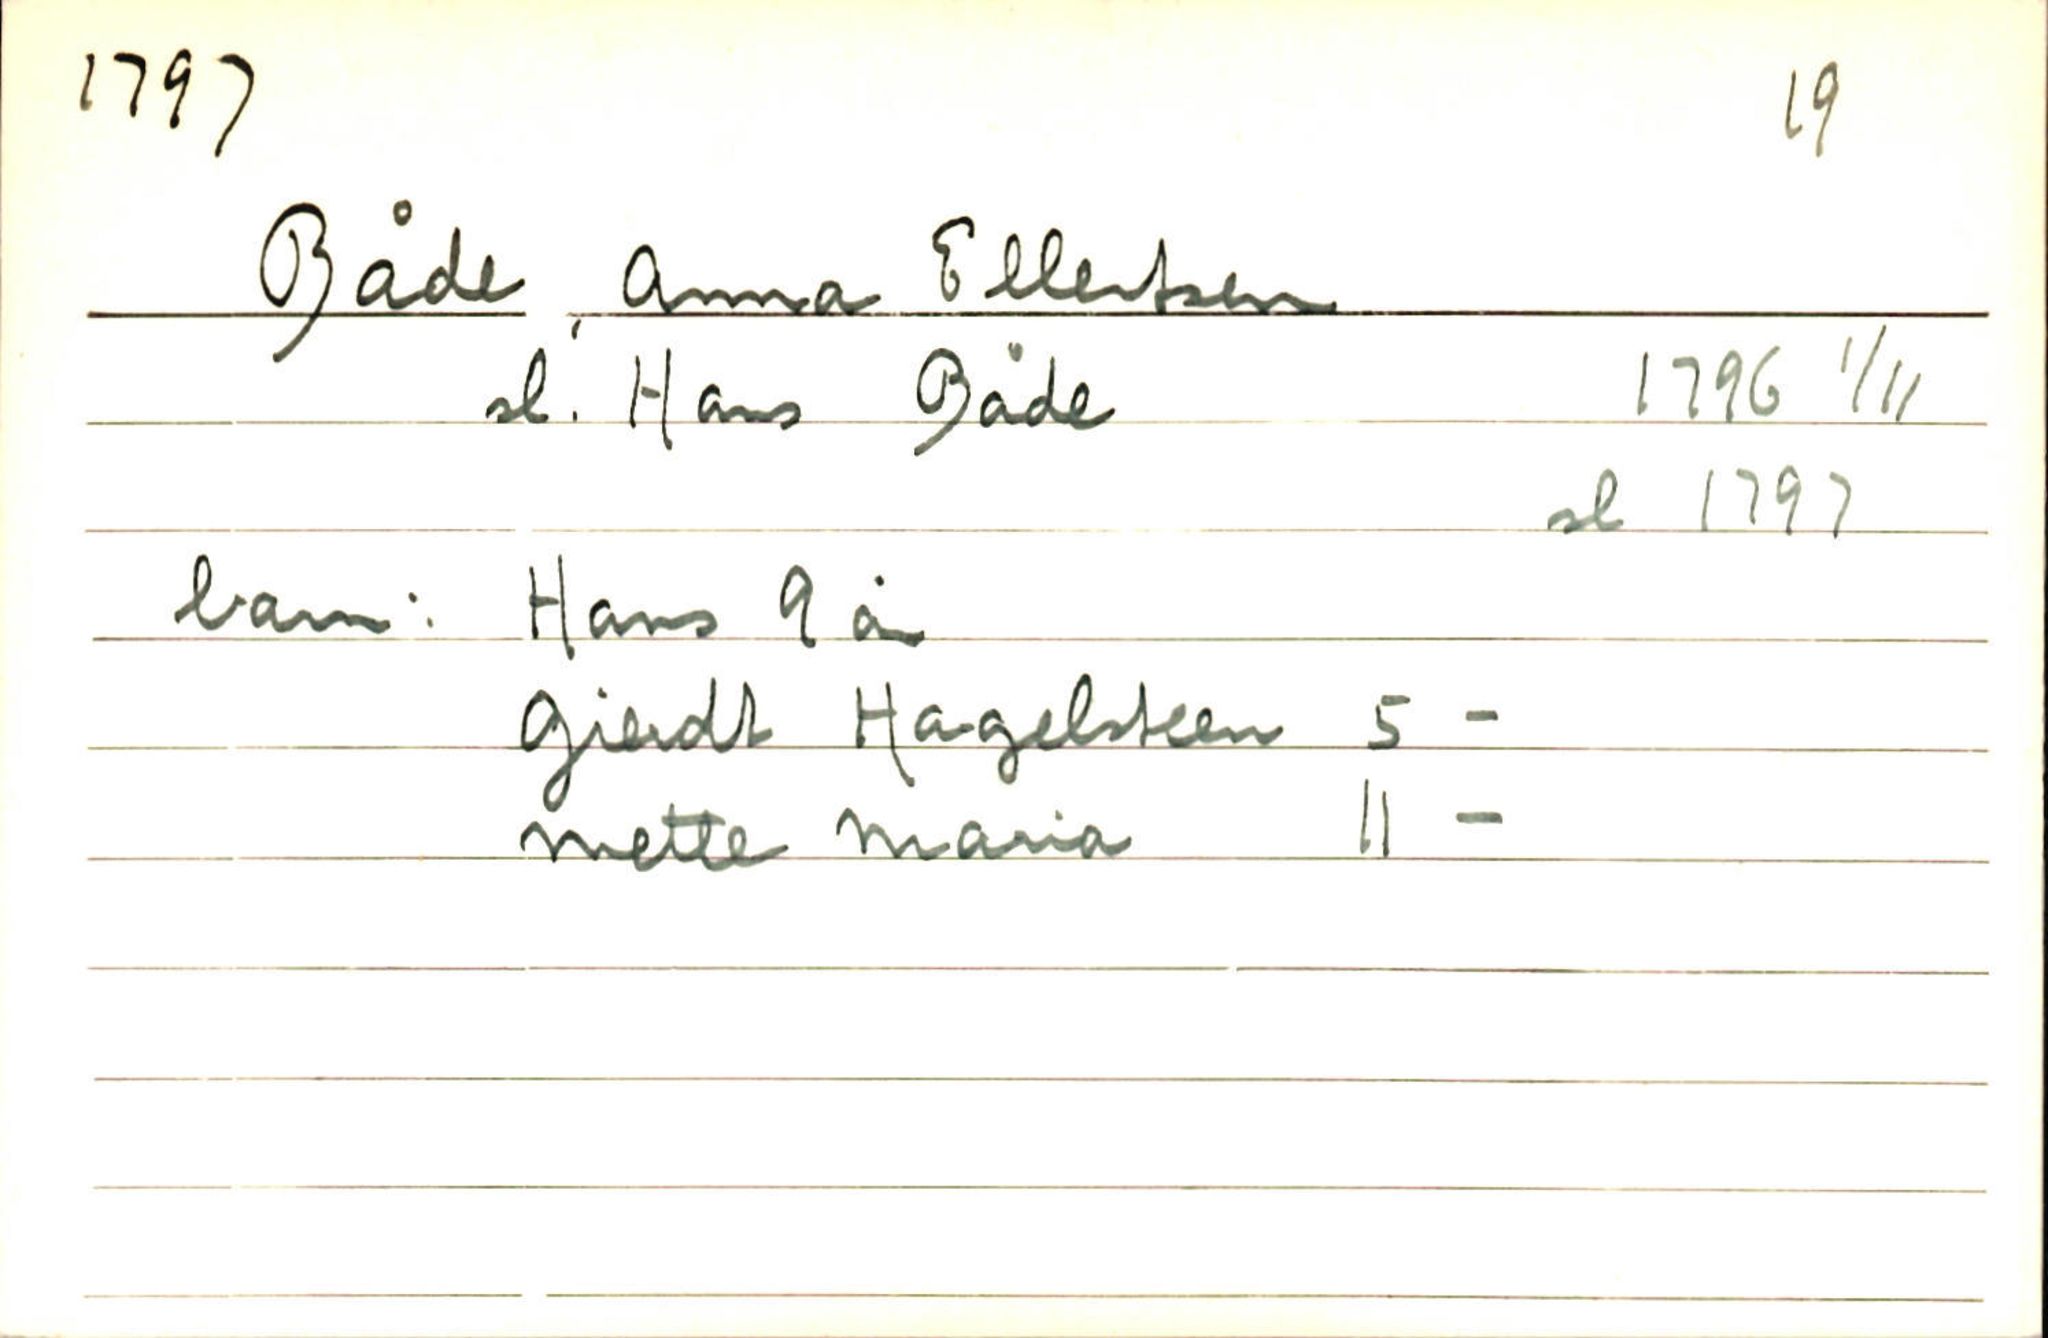 1797 19
Både, Anna Ellertsen
sl. Hans Både 1796 1/11
sl 1797
barn: Hans 9 år
Gierdt Hagelsteen 5 -
Mette Maria 11 -